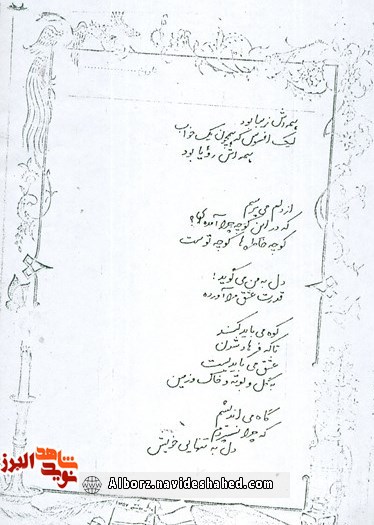 همه اش زیبا بود
لیک افسوس که همچون یک خواب
همه اش رؤیا بود
از دلم می پرسم
که در این کوچه چرا آمده ای؟
کوچه خاطره ها کوچه توست
دل به من می گوید:
قدرت عشق مرا آورده
کوه می باید کند
تا که فرهاد شدن
عشق می باید زیست
گل و بوته و خاک و زمین
گاه می اندیشم
که چرا
دل به تنهایی خویش
نوید شاهد البرز
Alborz.navideshahed.com